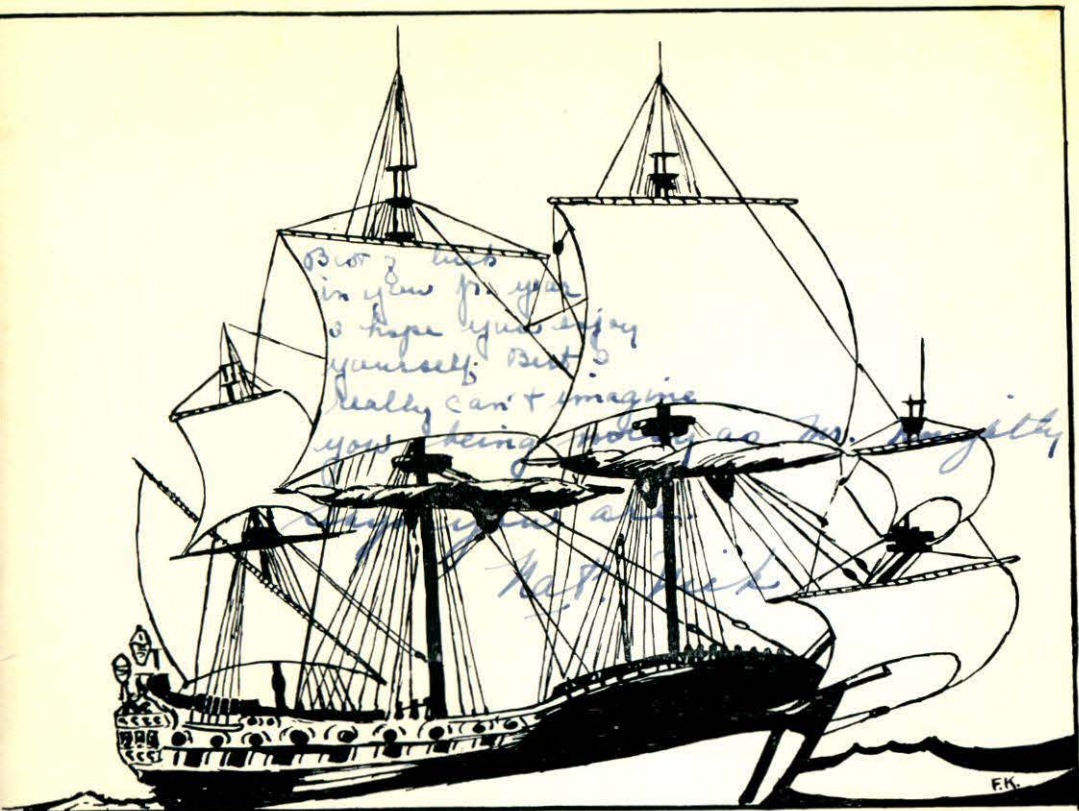 Best of luck
in your jr. year
I hope you enjoy
yourself. But I
really can't imagine
you being noisy as Mr.
says you are.
Nick
F.K.